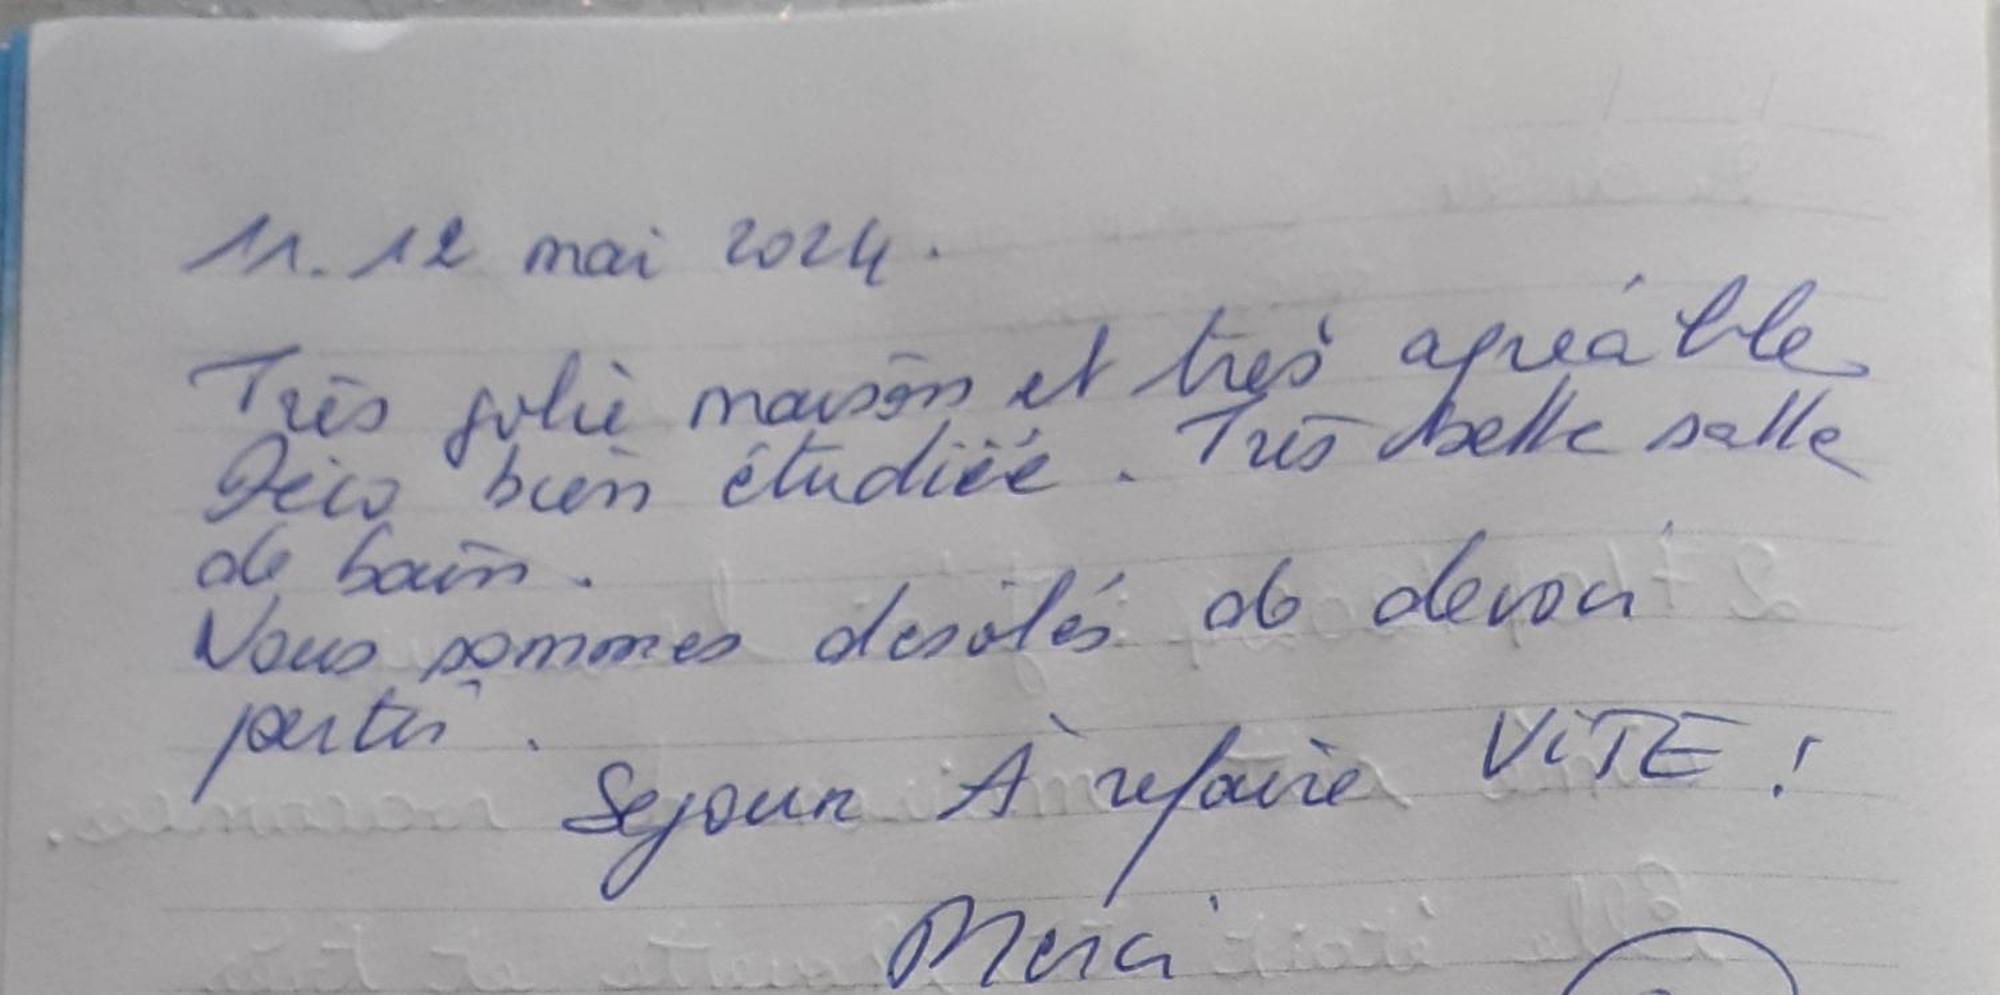 11. 12 mai 2024.
Très jolie maison et très agréable
Déco bien étudiée. Très belle salle
de bain.
Nous sommes désolés de devoir
partir.
Séjour À refaire VITE !
Merci